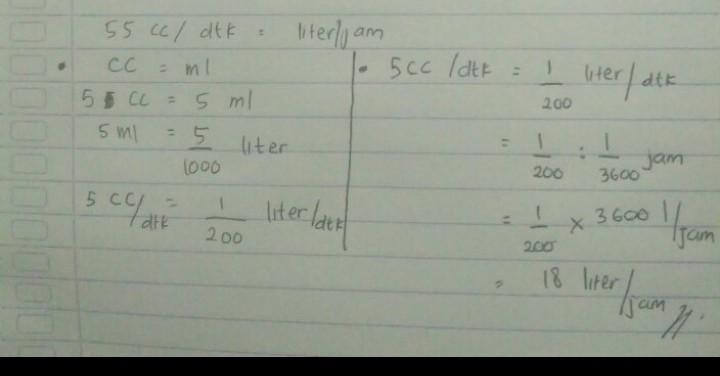 55 cc/dtk = liter/jam
• CC = ml
5 CC = 5 ml
5 ml = 5/1000 liter
5 CC/dtk = 1/200 liter/dtk
• 5CC/dtk = 1/200 liter/dtk
= 1/200 : 1/3600 jam
= 1/200 x 3600 l/jam
= 18 liter/jam //.